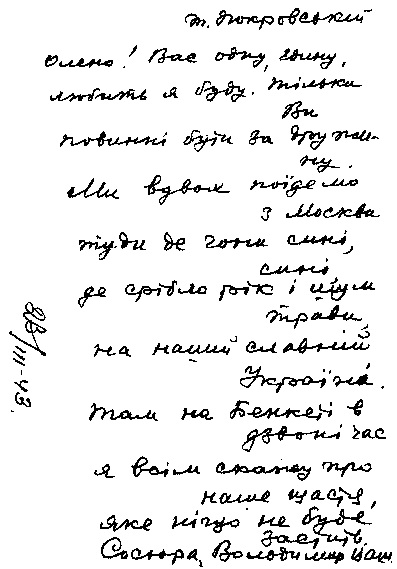 т. Покровській
Олено! Вас одну, єдину,
любить я буду. Тільки
Ви
повинні бути за дружи-
ну.
Ми вдвох поїдемо
з Москви
туди де гони сині,
сині
де срібло рік і шум
трави,
на нашій славній
Україні.
Там на Бенкеті в
дзвоні час
я всім скажу про
наше щастя,
яке ніщо не буде
застить.
Сосюра, Володимир Ваш.
28/III-43.